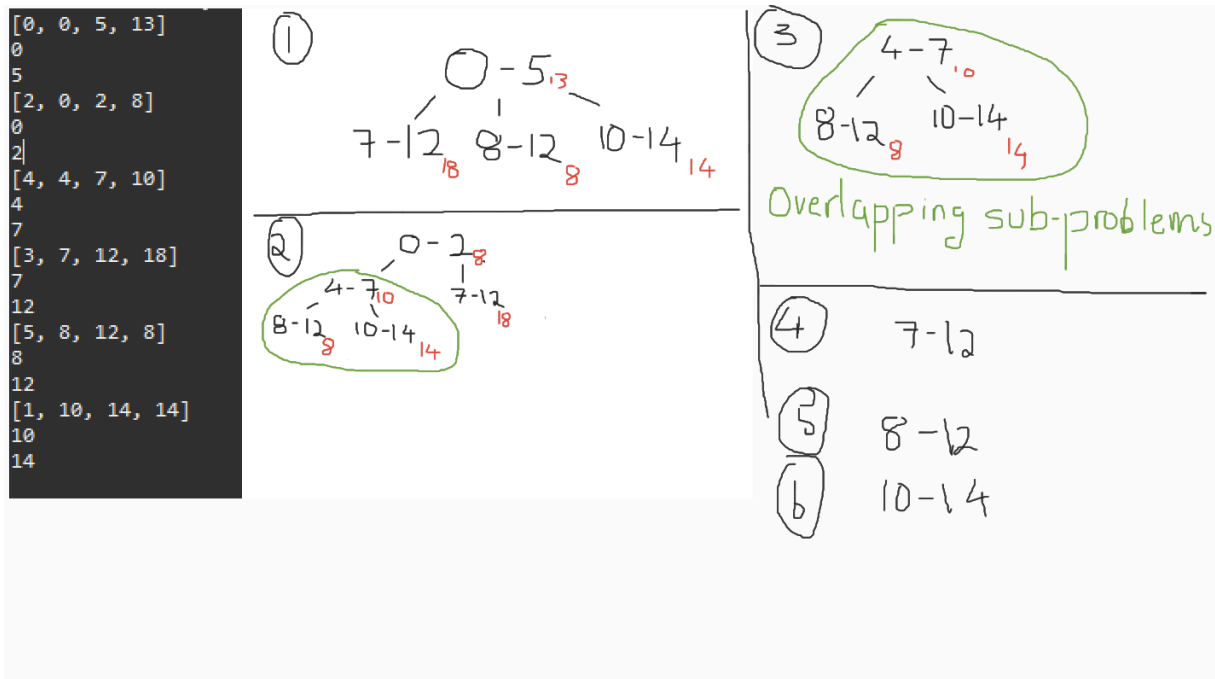 [0, 0, 5, 13]
0
5
[2, 0, 2, 8]
0
2
[4, 4, 7, 10]
4
7
[3, 7, 12, 18]
7
12
[5, 8, 12, 8]
8
12
[1, 10, 14, 14]
10
14
1
0-5 13
7-12 18 8-12 8 10-14 14
2
0-2 8
4-7 10 7-12 18
8-12 8 10-14 14
3
4-7 10
8-12 8 10-14 14
Overlapping sub-problems
4 7-12
5 8-12
6 10-14